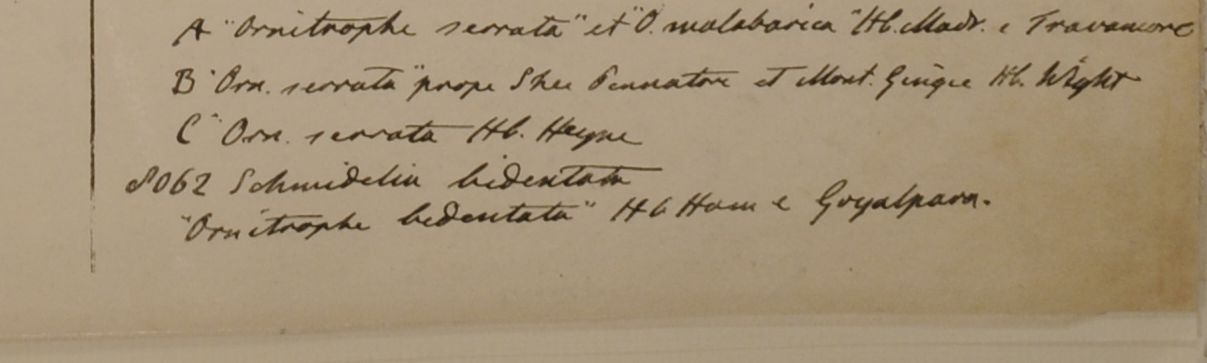 A "Ornitrophe serrata" et "O. malabarica" Hb. Madr. e Travancore
B "Orn. serrata" prope Shee Pennatore et Mont. Gingee Hb. Wight
C "Orn. serrata Hb. Heyne
8062 Schmidelia bidentata
"Ornitrophe bidentata" Hb Ham e Goyalpara.